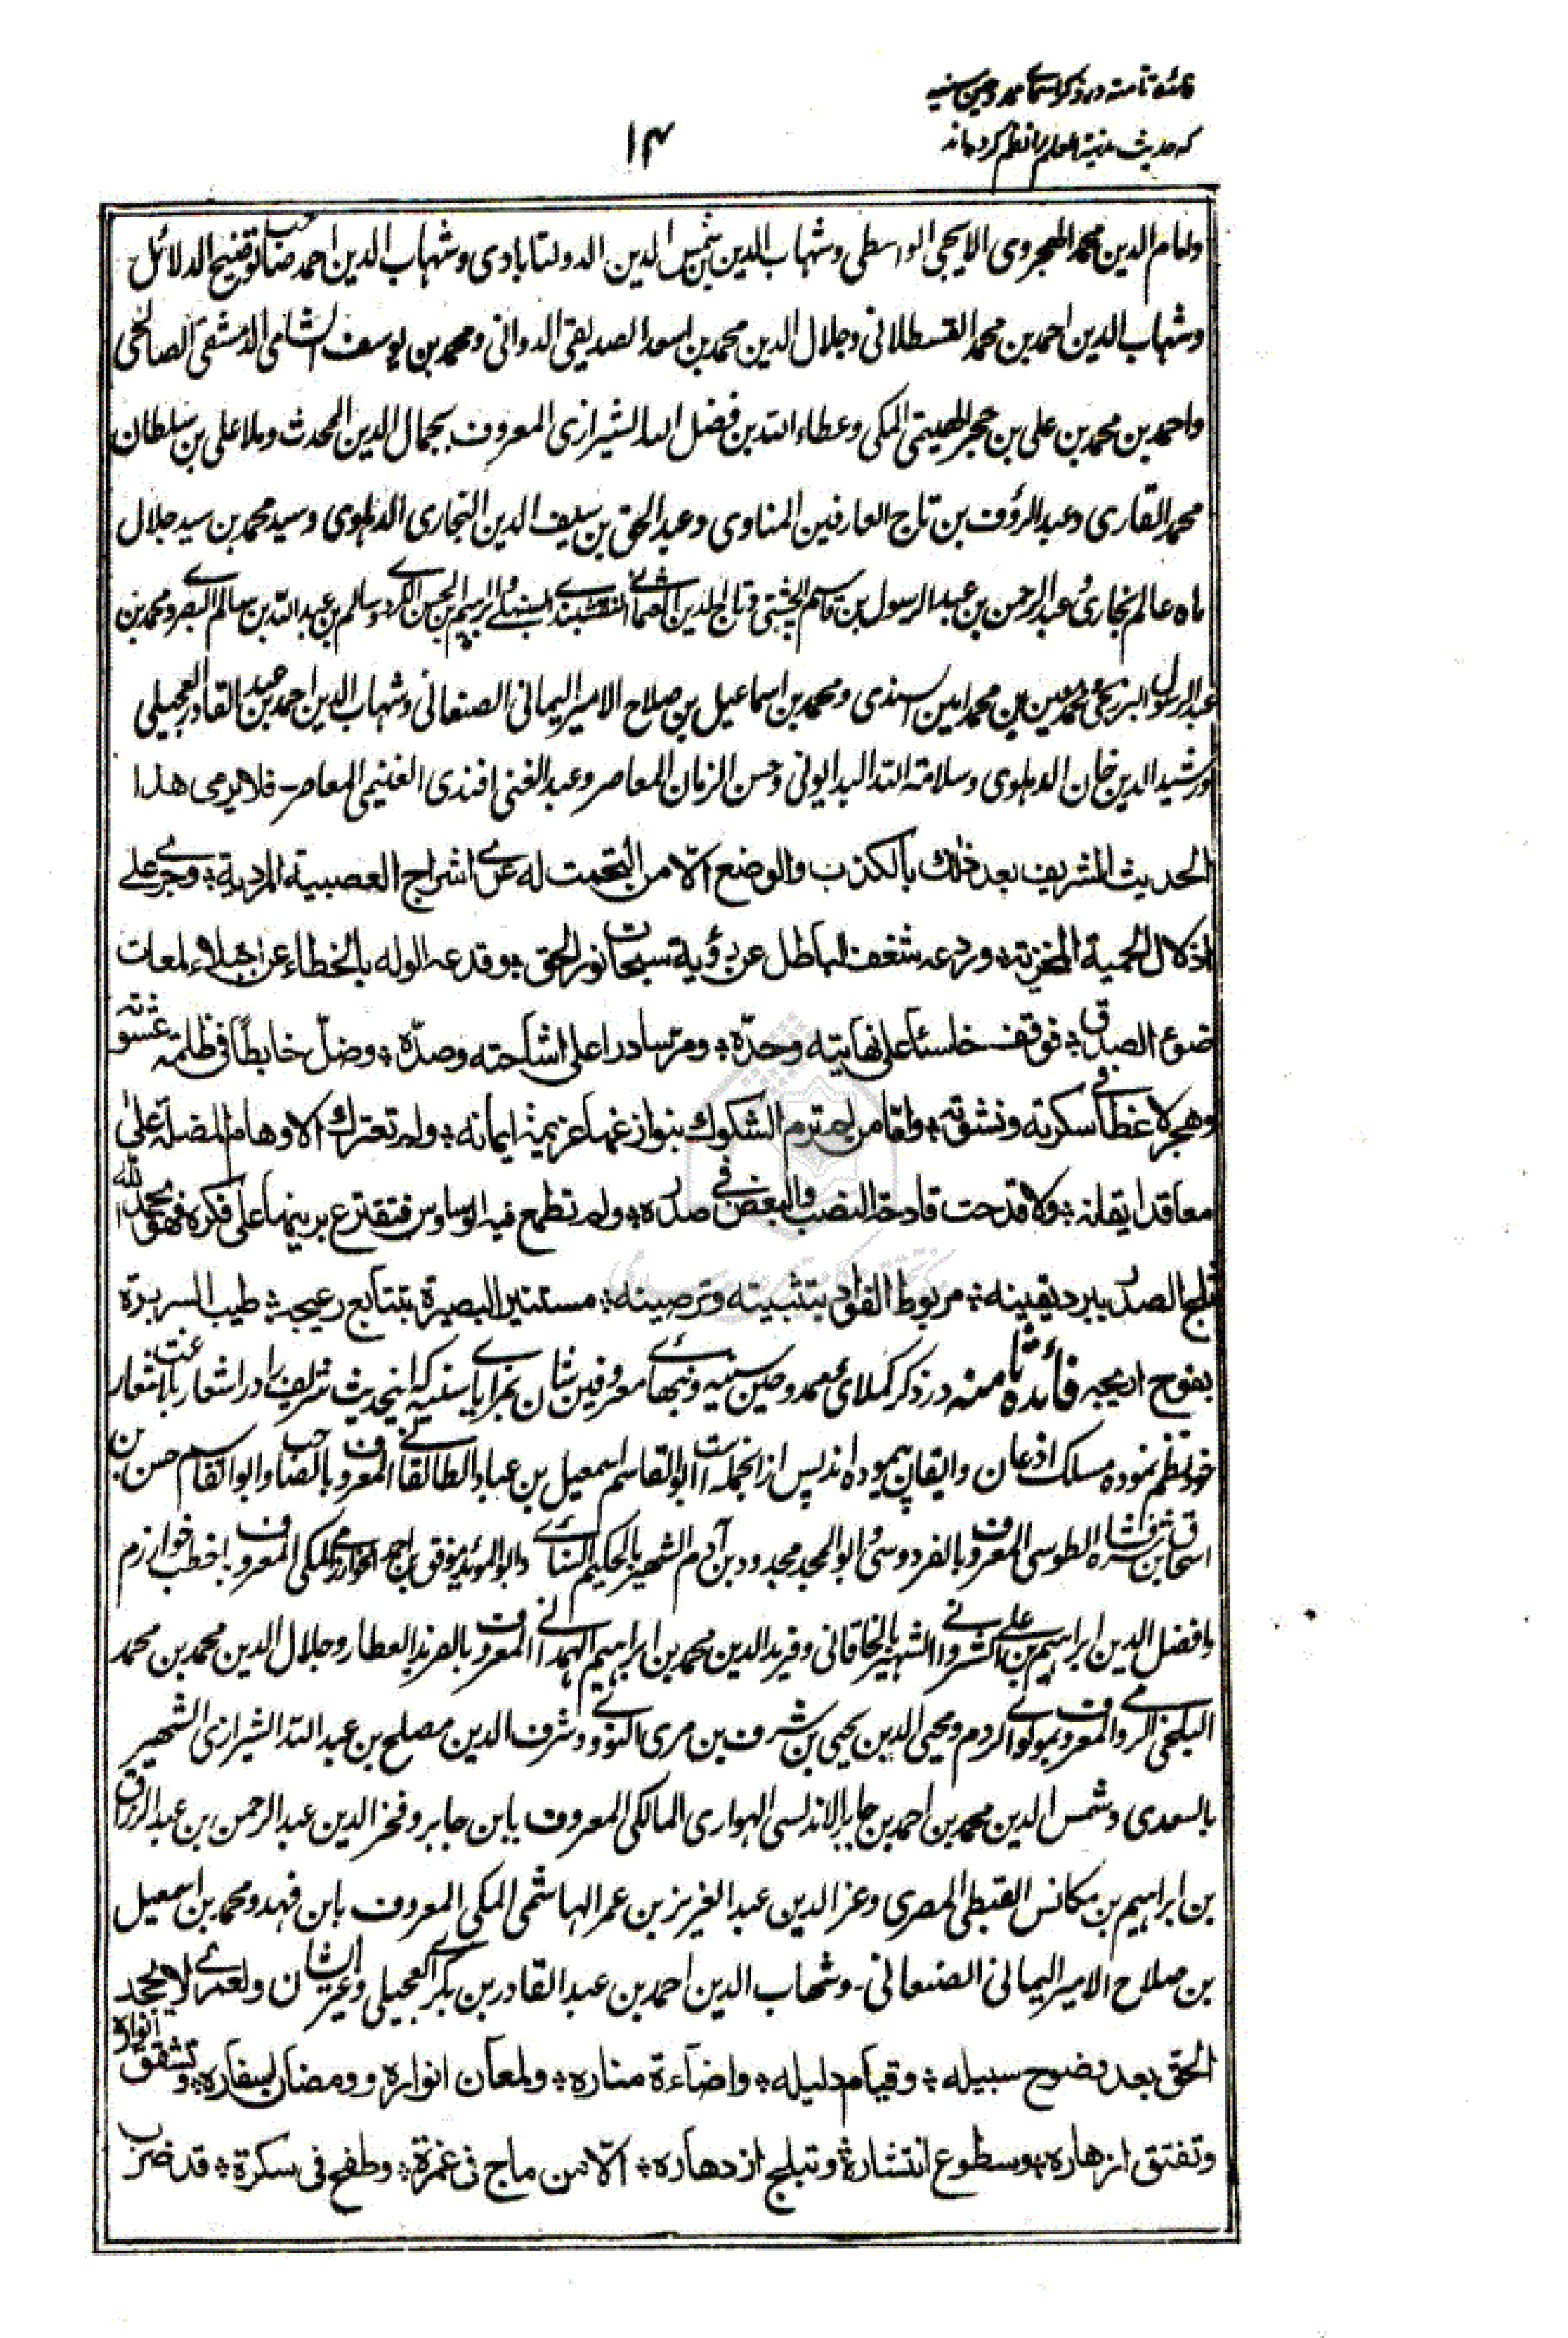 فائده ثامنه در ذكر اسمای ممدوحین سنیه
که حدیث مدینة العلم را نظم کرده‌اند
۱۴
وامام الدین محمد الهجروی الایجی الواسطی وشهاب الدین بن شمس الدین الدولتابادی وشهاب الدین احمد صاحب توضیح الدلائل
وشهاب الدین احمد بن محمد القسطلانی وجلال الدین محمد بن اسعد الصدیقی الدوانی ومحمد بن یوسف الشامی الدمشقی الصالحی
واحمد بن محمد بن علی بن حجر الهیتمی المکی وعطاء الله بن فضل الله الشیرازی المعروف بجمال الدین المحدث وملا علی بن سلطان
محمد القاری وعبد الرؤف بن تاج العارفین المناوی وعبد الحق بن سیف الدین البخاری الدهلوی وسید محمد بن سید جلال
ماه عالم بخاری وعبد الرحمن بن عبد الرسول بن قاسم الچشتی وتاج الدین العثمانی النقشبندی السنبهلی وابراهیم بن الحسن الکردی وسالم بن عبد الله بن سالم البصری ومحمد بن
عبد الرسول البرزنجی ومحمد معین بن محمد امین السندی ومحمد بن اسماعیل بن صلاح الامیر الیمانی الصنعانی وشهاب الدین احمد بن عبد القادر العجیلی
ورشید الدین خان الدهلوی وسلامة الله البدایونی وحسن الزمان المعاصر وعبد الغنی افندی الغنیمی المعاصر – فلا یرمی هذا
الحدیث الشریف بعد ذلك بالکذب والوضع الّا من التحمت له عری اشراج العصبیة المردیة، وجری علی
اذلال الحمیة المخزیة، وردعه شغف الباطل عن رؤیة سبحات نور الحق، وقدعه الوله بالخطاء عن اجتلاء لمعات
ضوء الصدق، فوقف خاسئًا علی نهایته وحدّه، ومرّ سادرا علی اشاحته وصدّه، وضلّ خابطًا فی ظلمته وغشوته
وهجر لاغطا فی سکرته ونشوته، وامّا من لم ترم الشکوك بنوازغها عزیمة ایمانه، ولم تعترك الاوهام المضلة علی
معاقد ایقانه، ولا قدحت قادحة النصب والبغض فی صدره، ولم تطمع فیه الوساوس فتقترع برینها علی فکره فهو بحمد الله
ثلج الصدر ببرد یقینه، مربوط الفؤاد بتثبیته وترصینه، مستنیر البصیرة بتتابع رعیجه، طیب السریرة
بفوح اریجه فائدۀ ثامنه در ذکر کملای ممدوحین سنیه ونبهای معروفین شان نحرایای سنیه که این حدیث شریف را در اشعار بلاغت شعار
خود نظم نموده مسلک اذعان وایقان پیموده اند پس از انجمله است ابو القاسم اسمعیل بن عباد الطالقانی المعروف بالصاحب وابو القاسم حسن بن
اسحاق بن شرفشاه الطوسی المعروف بالفردوسی وابو المجد مجدود بن آدم الشهیر بالحکیم السنائی وابو المؤید موفق بن احمد الخوارزمی المکی المعروف باخطب خوارزم
وافضل الدین ابراهیم بن علی الشروانی الشهیر بالخاقانی وفرید الدین محمد بن ابراهیم الهمدانی المعروف بالفرید العطار وجلال الدین محمد بن محمد
البلخی الرومی المعروف بمولوی الروم ومحیی الدین یحیی بن شرف بن مری النووی وشرف الدین مصلح بن عبد الله الشیرازی الشهیر
بالسعدی وشمس الدین محمد بن احمد بن جابر الاندلسی الهواری المالکی المعروف بابن جابر وفخر الدین عبد الرحمن بن عبد الرزاق
بن ابراهیم بن مکانس القبطی المصری وعز الدین عبد العزیز بن عمر الهاشمی المکی المعروف بابن فهد ومحمد بن اسمعیل
بن صلاح الامیر الیمانی الصنعانی – وشهاب الدین احمد بن عبد القادر بن بکری العجیلی وغیر ایشان ولعمری لا یجحد
الحق بعد وضوح سبیله، وقیام دلیله، واضاءة مناره، ولمعان انواره وومضان اسفاره، وتشقق انواره
وتفتق ازهاره، وسطوع انتشاره، وتبلج ازدهاره، الّا من ماج فی غمرة، وطفح فی سکرة، قد ضرب